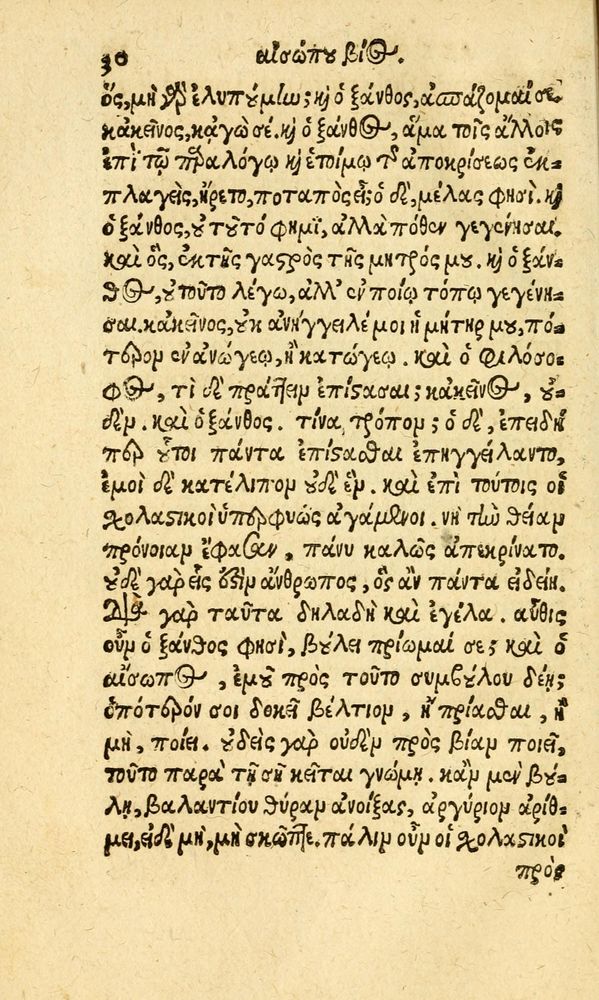 30 αἰσώπου βίος.
ὅς, μὴ γὰρ ἐλυπούμην; καὶ ὁ ξάνθος, ἀσπάζομαί σε.
κἀκεῖνος, κᾀγὼ σέ. καὶ ὁ ξάνθος, ἅμα τοῖς ἄλλοις
ἐπὶ τῷ παραλόγῳ καὶ ἑτοίμῳ τῆς ἀποκρίσεως ἐκ-
πλαγεὶς, ἤρετο, ποταπὸς εἶ; ὁ δὲ, μέλας φησί. καὶ
ὁ ξάνθος, οὐ τοῦτό φημὶ, ἀλλὰ πόθεν γεγένησαι.
καὶ ὃς, ἐκ τῆς γαστρὸς τῆς μητρός μου. καὶ ὁ ξάν-
θος, οὐ τοῦτο λέγω, ἀλλ' ἐν ποίῳ τόπῳ γεγένη-
σαι. κἀκεῖνος, οὐκ ἀνήγγειλέ μοι ἡ μήτηρ μου, πό-
τερον ἐν ἀνώγεῳ, ἢ κατώγεῳ. καὶ ὁ φιλόσο-
φος, τί δὲ πράττειν ἐπίστασαι; κἀκεῖνος, οὐ-
δέν. καὶ ὁ ξάνθος. τίνα τρόπον; ὁ δὲ, ἐπειδή
περ οὗτοι πάντα ἐπίστασθαι ἐπηγγείλαντο,
ἐμοὶ δὲ κατέλιπον οὐδὲ ἕν. καὶ ἐπὶ τούτοις οἱ
σχολαστικοὶ ὑπερφυῶς ἀγάμενοι. νὴ τὴν θείαν
πρόνοιαν ἔφασαν, πάνυ καλῶς ἀπεκρίνατο.
οὐδὲ γὰρ εἷς ἐστὶν ἄνθρωπος, ὃς ἂν πάντα εἰδείη.
διὰ γὰρ ταῦτα δηλαδὴ καὶ ἐγέλα. αὖθις
οὖν ὁ ξάνθος φησὶ, βούλει πρίωμαί σε; καὶ ὁ
αἴσωπος, ἐμοῦ πρὸς τοῦτο συμβούλου δέῃ;
ὁπότερόν σοι δοκεῖ βέλτιον, ἢ πρίασθαι, ἢ
μὴ, ποίει. οὐδεὶς γὰρ οὐδὲν πρὸς βίαν ποιεῖ,
τοῦτο παρὰ τῇ σῇ κεῖται γνώμῃ. κἂν μὲν βού-
λῃ, βαλαντίου θύραν ἀνοίξας, ἀργύριον ἀρίθ-
μει, εἰ δὲ μὴ, μὴ σκῶπτε. πάλιν οὖν οἱ σχολαστικοὶ
πρὸς